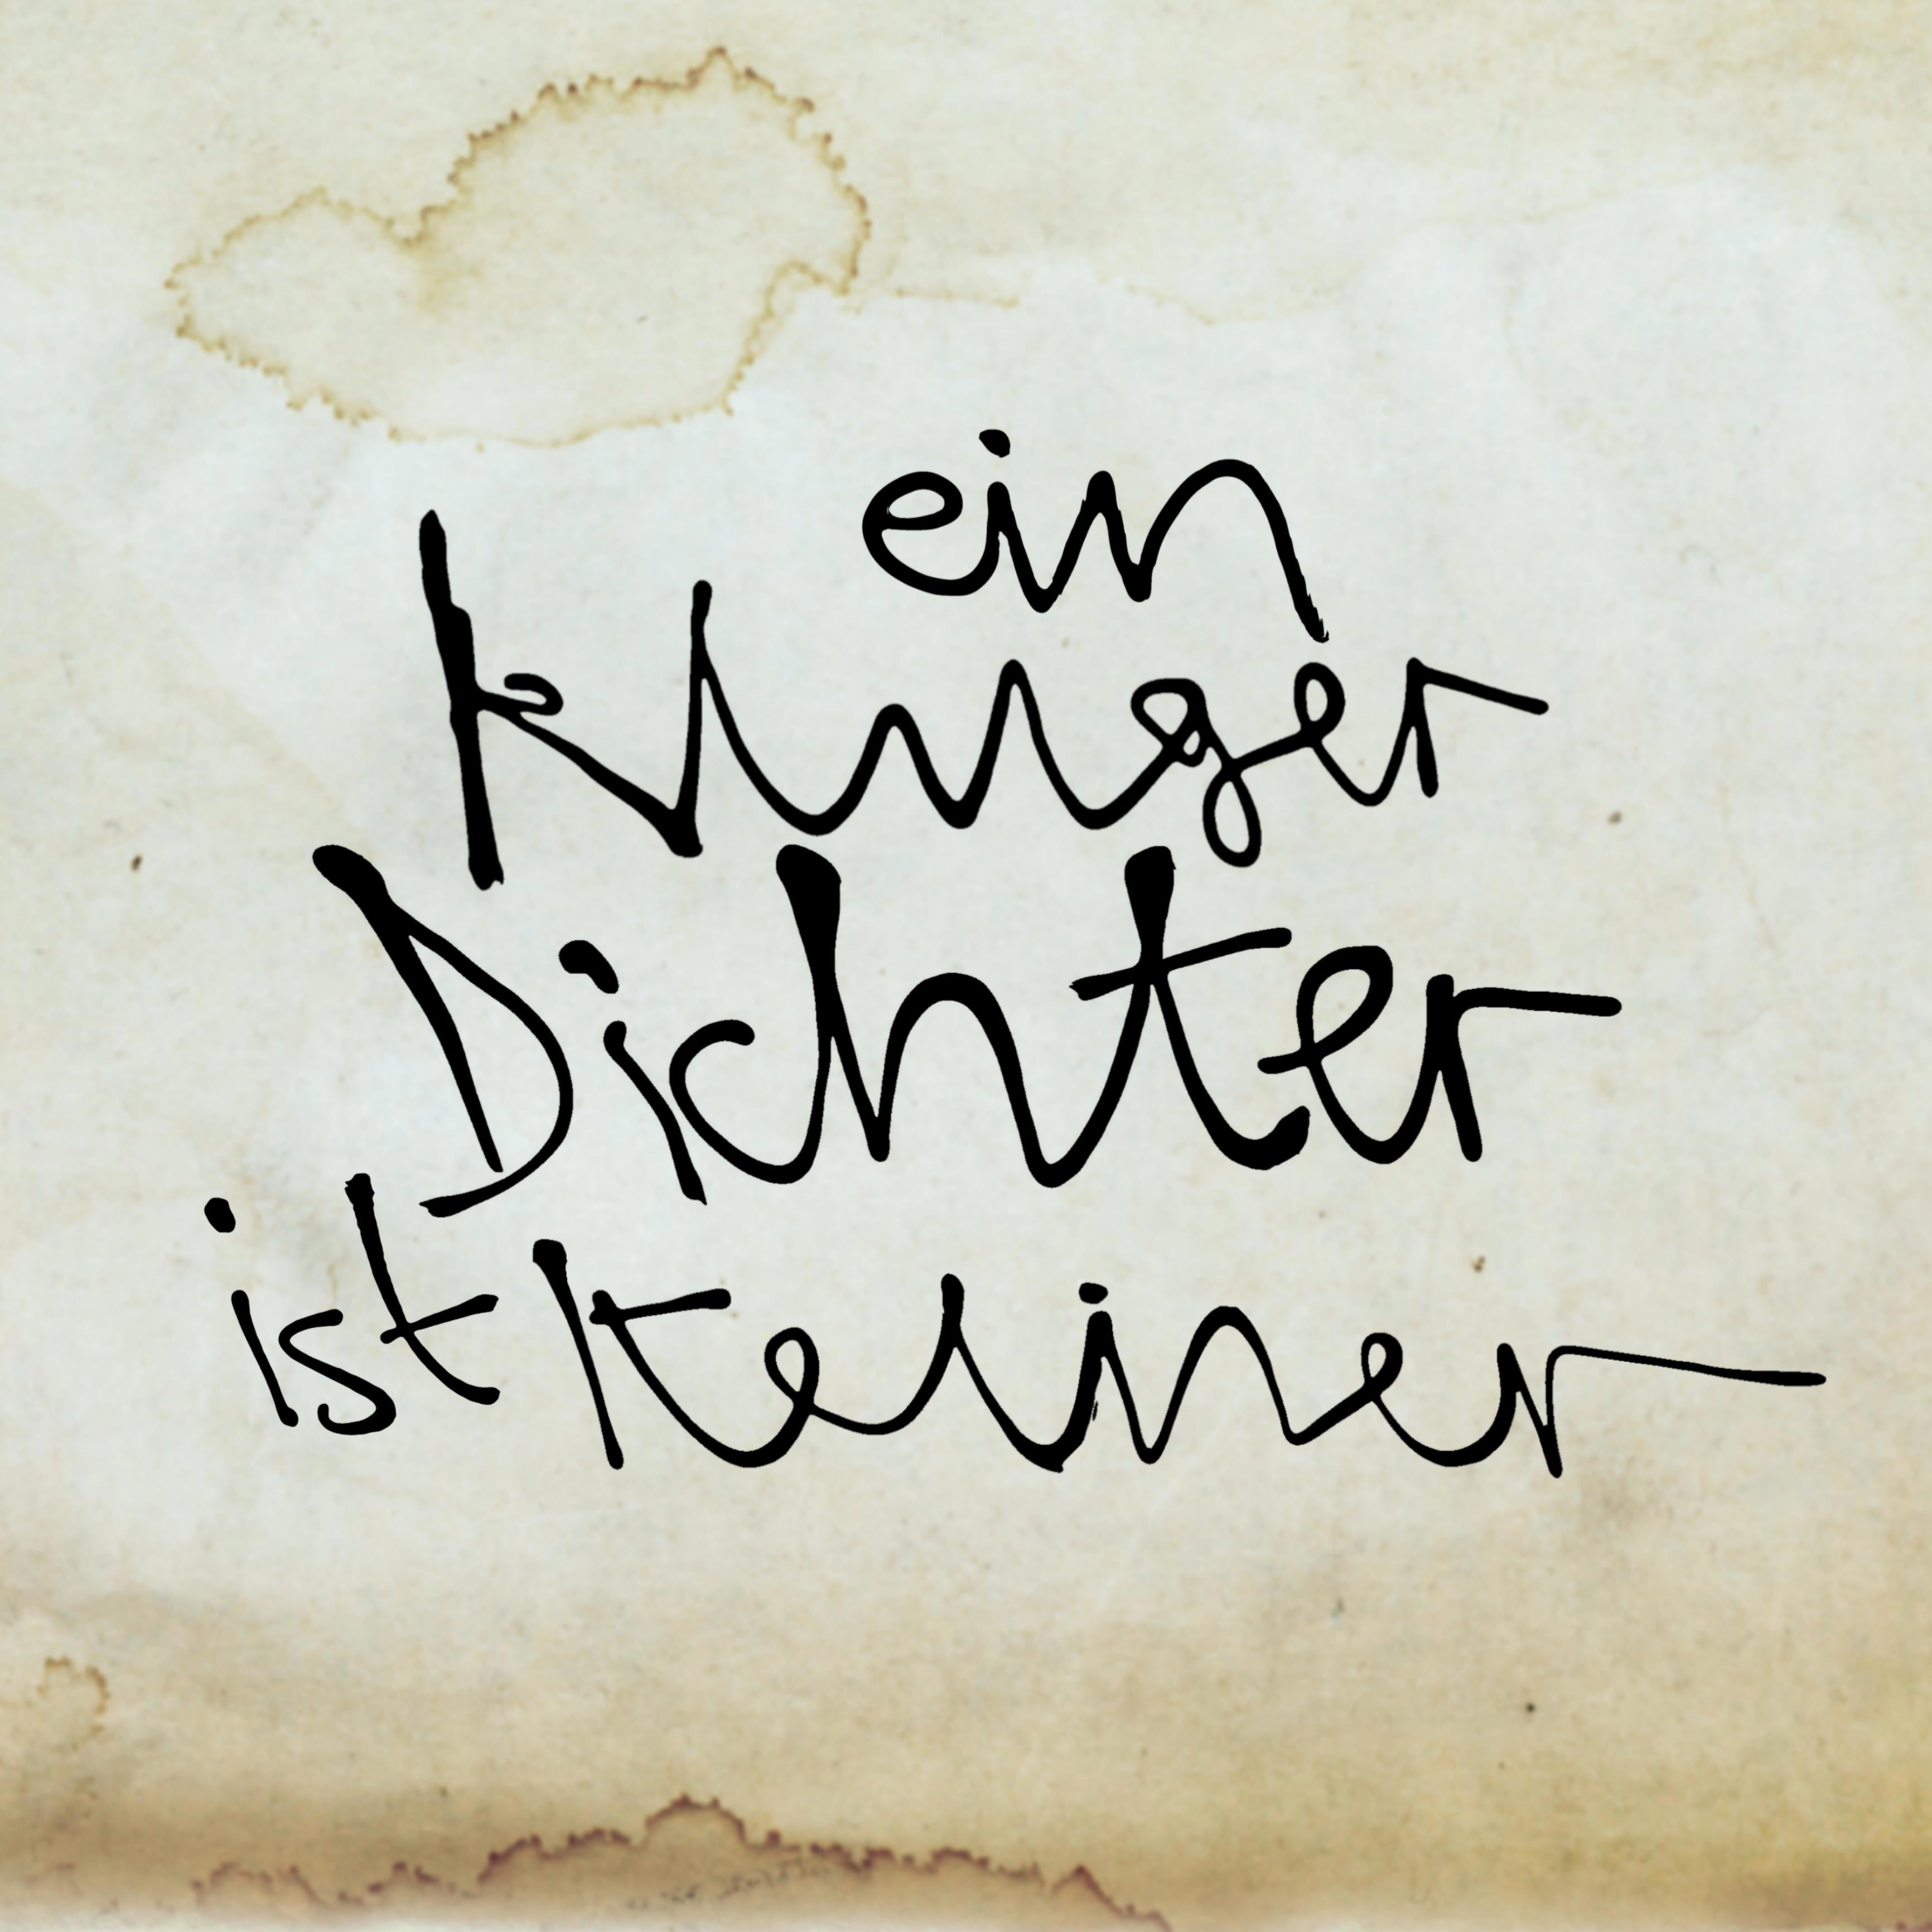 ein
kluger
Dichter
ist keiner